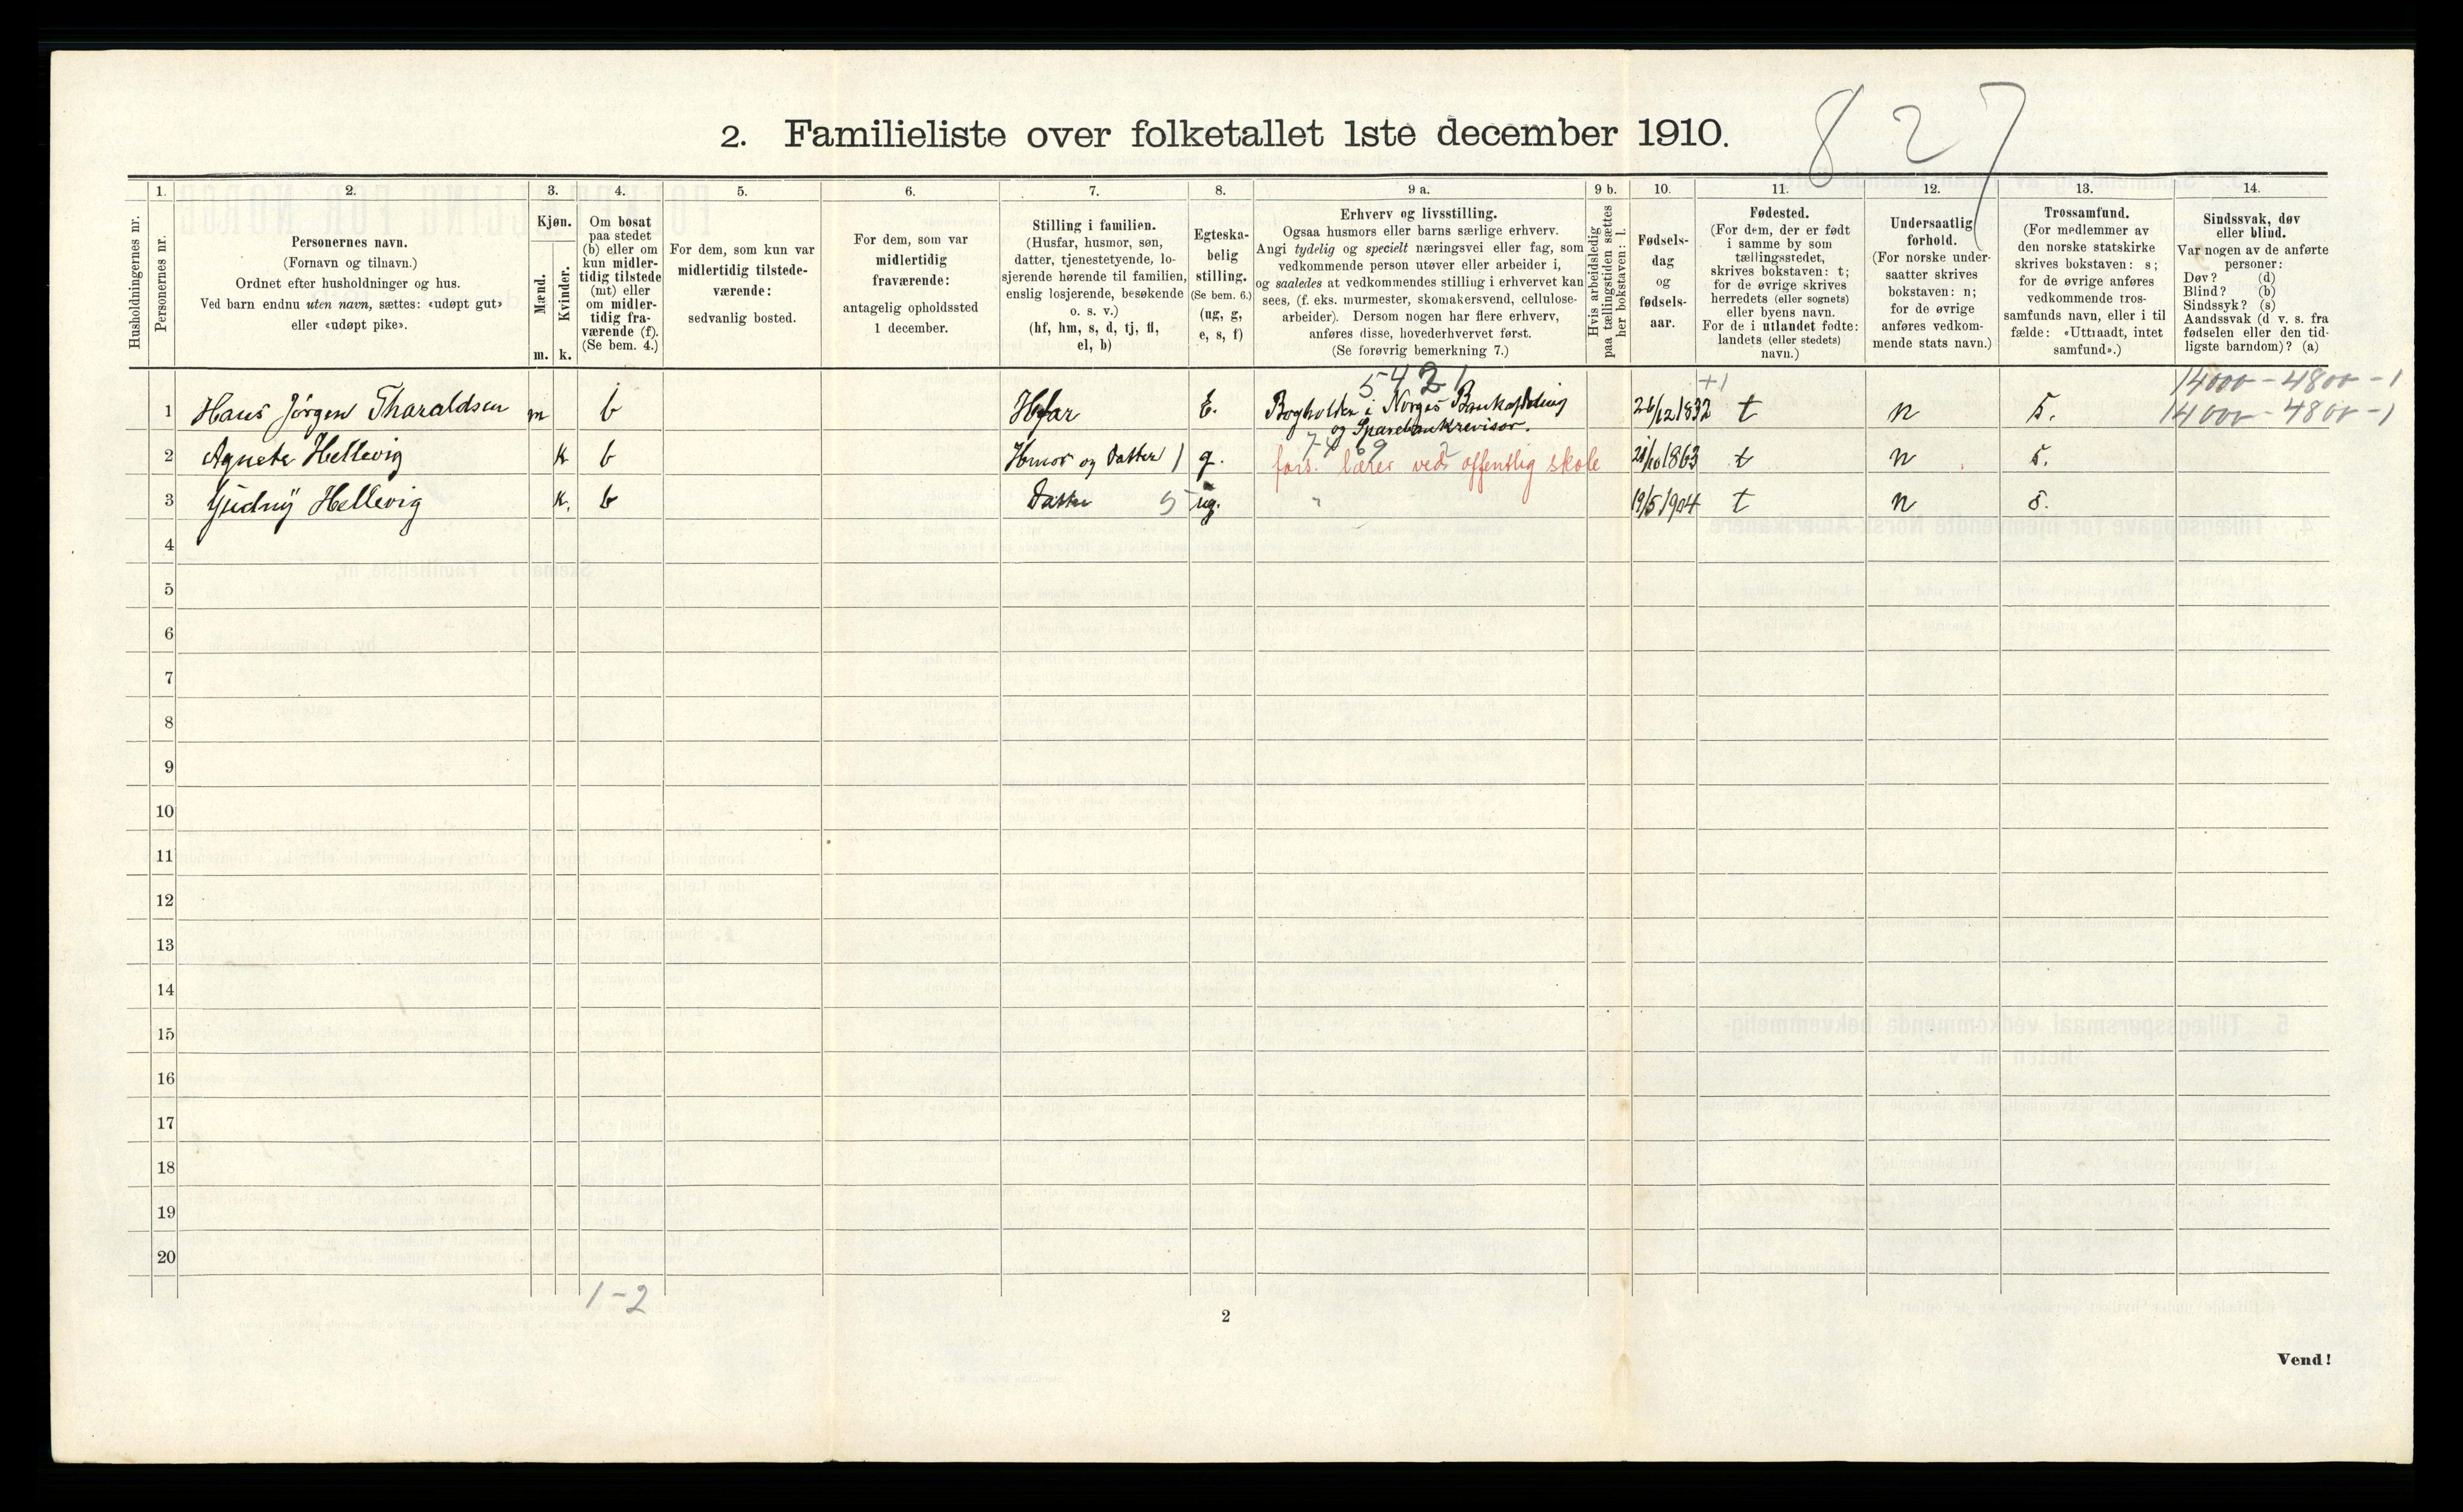 827
2. Familieliste over folketallet 1ste december 1910.
Husholdningernes nr.
1.
Personernes nr.
2.
Personernes navn.
(Fornavn og tilnavn.)
Ordnet efter husholdninger og hus.
Ved barn endnu uten navn, sættes: «udøpt gut»
eller «udøpt pike».
3.
Kjøn.
Mænd.
Kvinder.
m. k.
4.
Om bosat
paa stedet
(b) eller om
kun midler-
tidig tilstede
(mt) eller
om midler-
tidig fra-
værende (f).
(Se bem. 4.)
5.
For dem, som kun var
midlertidig tilstede-
værende:
sedvanlig bosted.
6.
For dem, som var
midlertidig
fraværende:
antagelig opholdssted
1 december.
7.
Stilling i familien.
(Husfar, husmor, søn,
datter, tjenestetyende, lo-
sjerende hørende til familien,
enslig losjerende, besøkende
o. s. v.)
(hf, hm, s, d, tj, fl,
el, b)
8.
Egteska-
belig
stilling.
(Se bem. 6.)
(ug, g,
e, s, f)
9 a.
Erhverv og livsstilling.
Ogsaa husmors eller barns særlige erhverv.
Angi tydelig og specielt næringsvei eller fag, som
vedkommende person utøver eller arbeider i,
og saaledes at vedkommendes stilling i erhvervet kan
sees, (f. eks. murmester, skomakersvend, cellulose-
arbeider). Dersom nogen har flere erhverv,
anføres disse, hovederhvervet først.
(Se forøvrig bemerkning 7.)
9 b.
Hvis arbeidsledig
paa tællingstiden sættes
her bokstaven: l.
10.
Fødsels-
dag
og
fødsels-
aar.
11.
Fødested.
(For dem, der er født
i samme by som
tællingsstedet,
skrives bokstaven: t;
for de øvrige skrives
herredets (eller sognets)
eller byens navn.
For de i utlandet fødte:
landets (eller stedets)
navn.)
12.
Undersaatlig
forhold.
(For norske under-
saatter skrives
bokstaven: n;
for de øvrige
anføres vedkom-
mende stats navn.)
13.
Trossamfund.
(For medlemmer av
den norske statskirke
skrives bokstaven: s;
for de øvrige anføres
vedkommende tros-
samfunds navn, eller i til
fælde: «Uttraadt, intet
samfund».)
14.
Sindssvak, døv
eller blind.
Var nogen av de anførte
personer:
Døv? (d)
Blind? (b)
Sindssyk? (s)
Aandssvak (d v. s. fra
fødselen eller den tid-
ligste barndom)? (a)
5421 +1 14000 - 4800 - 1
1 Hans Jørgen Tharaldsen m b Hfar E. Bogholder i Norges Bankafdeling 26/12 1832 t n s. 14000 - 4800 - 1
og Sparebankrevisor.
2 Agnete Hellevig k b Hmor og Datter 1 g. fors. lærer ved offentlig skole 1863 t n s.
3 Gudny Hellevig k. b Datter 5 ug. " 19/5 1904 t n s.
4
5
6
7
8
9
10
11
12
13
14
15
16
17
18
19
20
1-2
2
Vend!